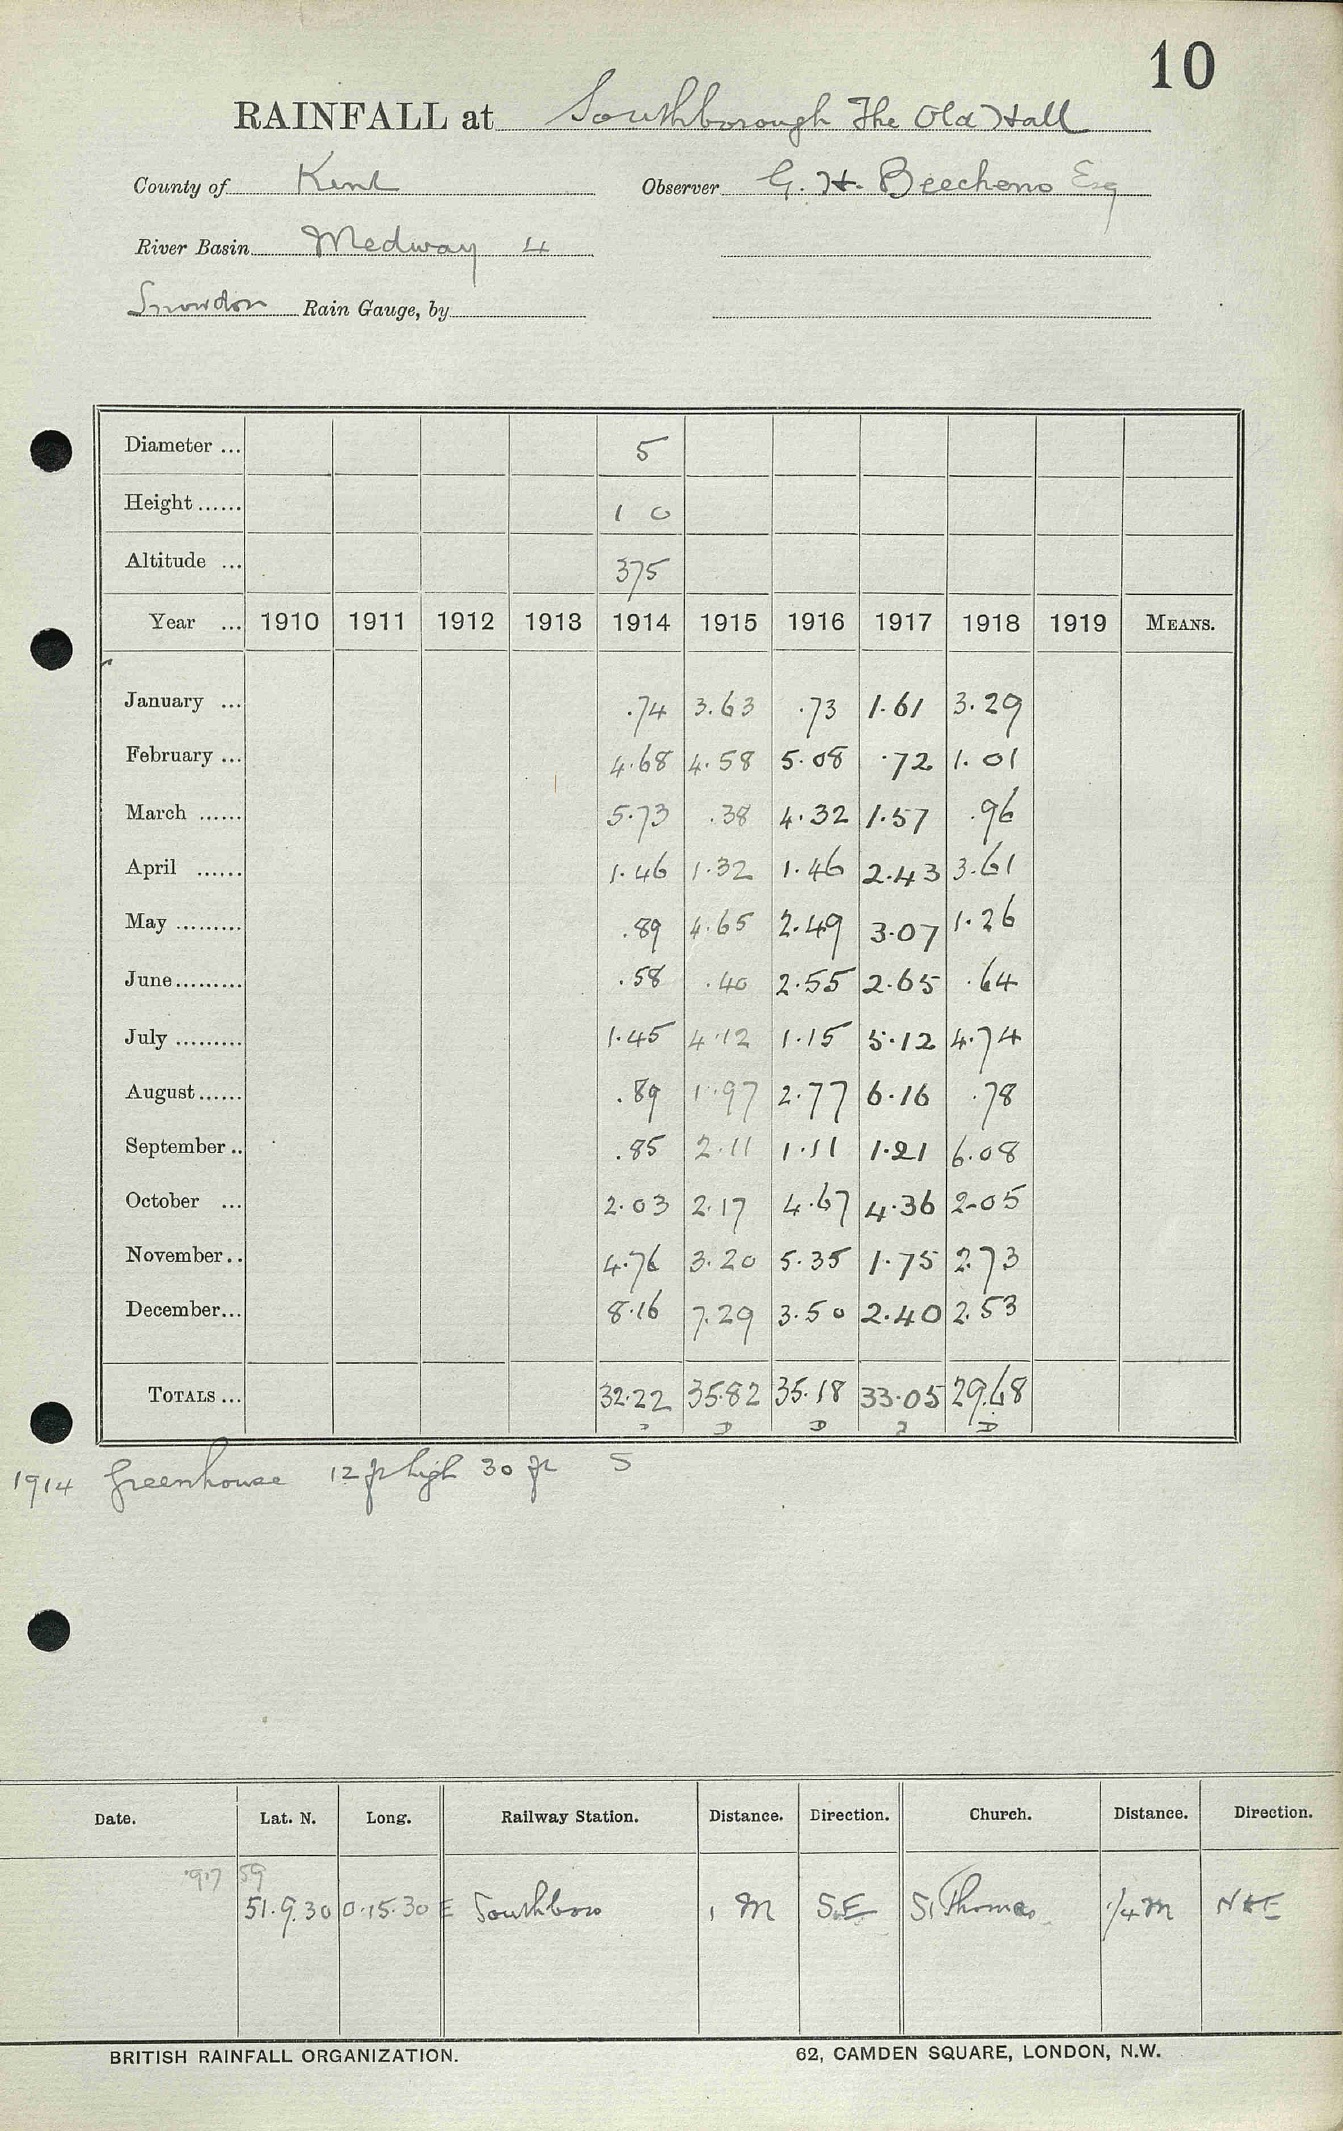 10
RAINFALL at Southborough The Old Hall
County of Kent Observer G. H. Beechens Esq
River Basin Medway 4
Snowdon Rain Gauge, by
Diameter ... 5
Height ...... 1 0
Altitude ... 375
Year ... 1910 1911 1912 1913 1914 1915 1916 1917 1918 1919 MEANS.
January ... .74 3.63 .73 1.61 3.29
February ... 4.68 4.58 5.08 .72 1.01
March ...... 5.73 .38 4.32 1.57 .96
April ...... 1.46 1.32 1.46 2.43 3.61
May ......... .89 4.65 2.49 3.07 1.26
June ......... .58 .40 2.55 2.65 .64
July ......... 1.45 4.12 1.15 5.12 4.74
August ...... .89 1.97 2.77 6.16 .78
September .. .85 2.11 1.11 1.21 6.08
October ... 2.03 2.17 4.67 4.36 2.05
November .. 4.76 3.20 5.35 1.75 2.73
December ... 8.16 7.29 3.50 2.40 2.53
TOTALS ... 32.22 35.82 35.18 33.05 29.68
D D D D D
1914 Greenhouse 12 ft high 30 ft S
Date. Lat. N. Long. Railway Station. Distance. Direction. Church. Distance. Direction.
51.9.30 0.15.30 E Southboro 1 M S.E St Thomas 1/4 M N+E
BRITISH RAINFALL ORGANIZATION. 62, CAMDEN SQUARE, LONDON, N.W.